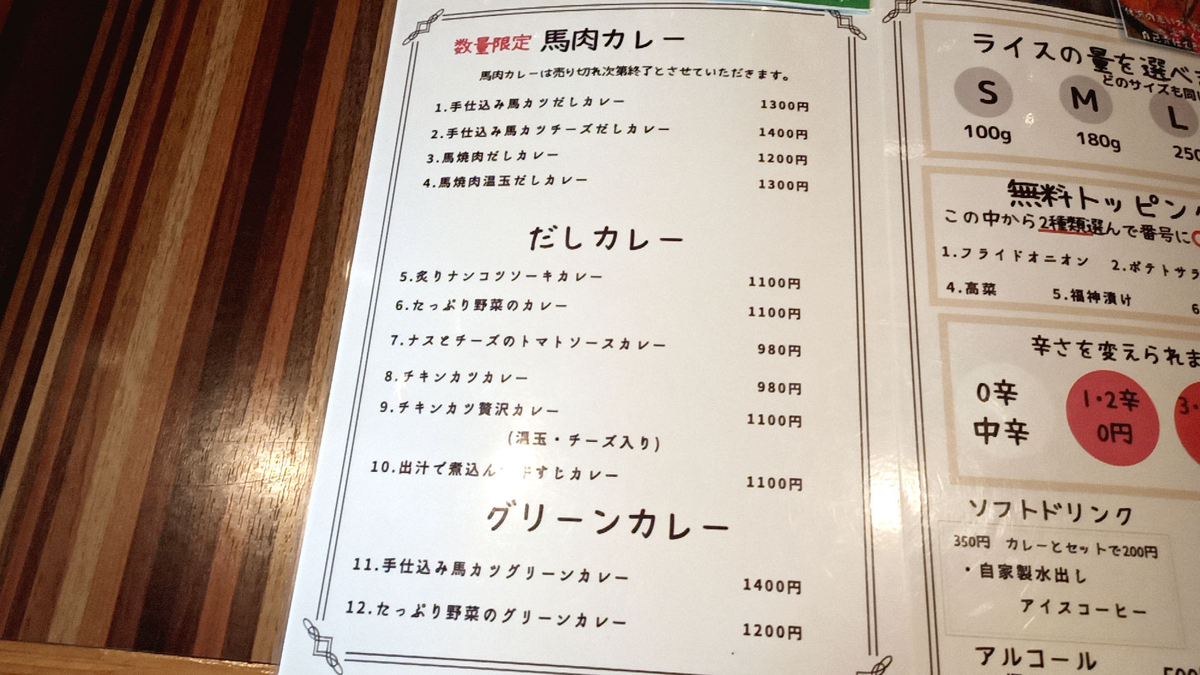 数量限定 馬肉カレー
馬肉カレーは売り切れ次第終了とさせていただきます。
1.手仕込み馬カツだしカレー 1300円
2.手仕込み馬カツチーズだしカレー 1400円
3.馬焼肉だしカレー 1200円
4.馬焼肉温玉だしカレー 1300円
だしカレー
5.炙りナンコツソーキカレー 1100円
6.たっぷり野菜のカレー 1100円
7.ナスとチーズのトマトソースカレー 980円
8.チキンカツカレー 980円
9.チキンカツ贅沢カレー 1100円
(温玉・チーズ入り)
10.出汁で煮込ん すじカレー 1100円
グリーンカレー
11.手仕込み馬カツグリーンカレー 1400円
12.たっぷり野菜のグリーンカレー 1200円
ライスの量を選べ
どのサイズも同
S M L
100g 180g 250
無料トッピン
この中から2種類選んで番号に
1.フライドオニオン 2.ポテトサラ
4.高菜 5.福神漬け 6
辛さを変えられま
0辛 1・2辛 3・
中辛 0円
ソフトドリンク
350円 カレーとセットで200円
・自家製水出し
アイスコーヒー
アルコール